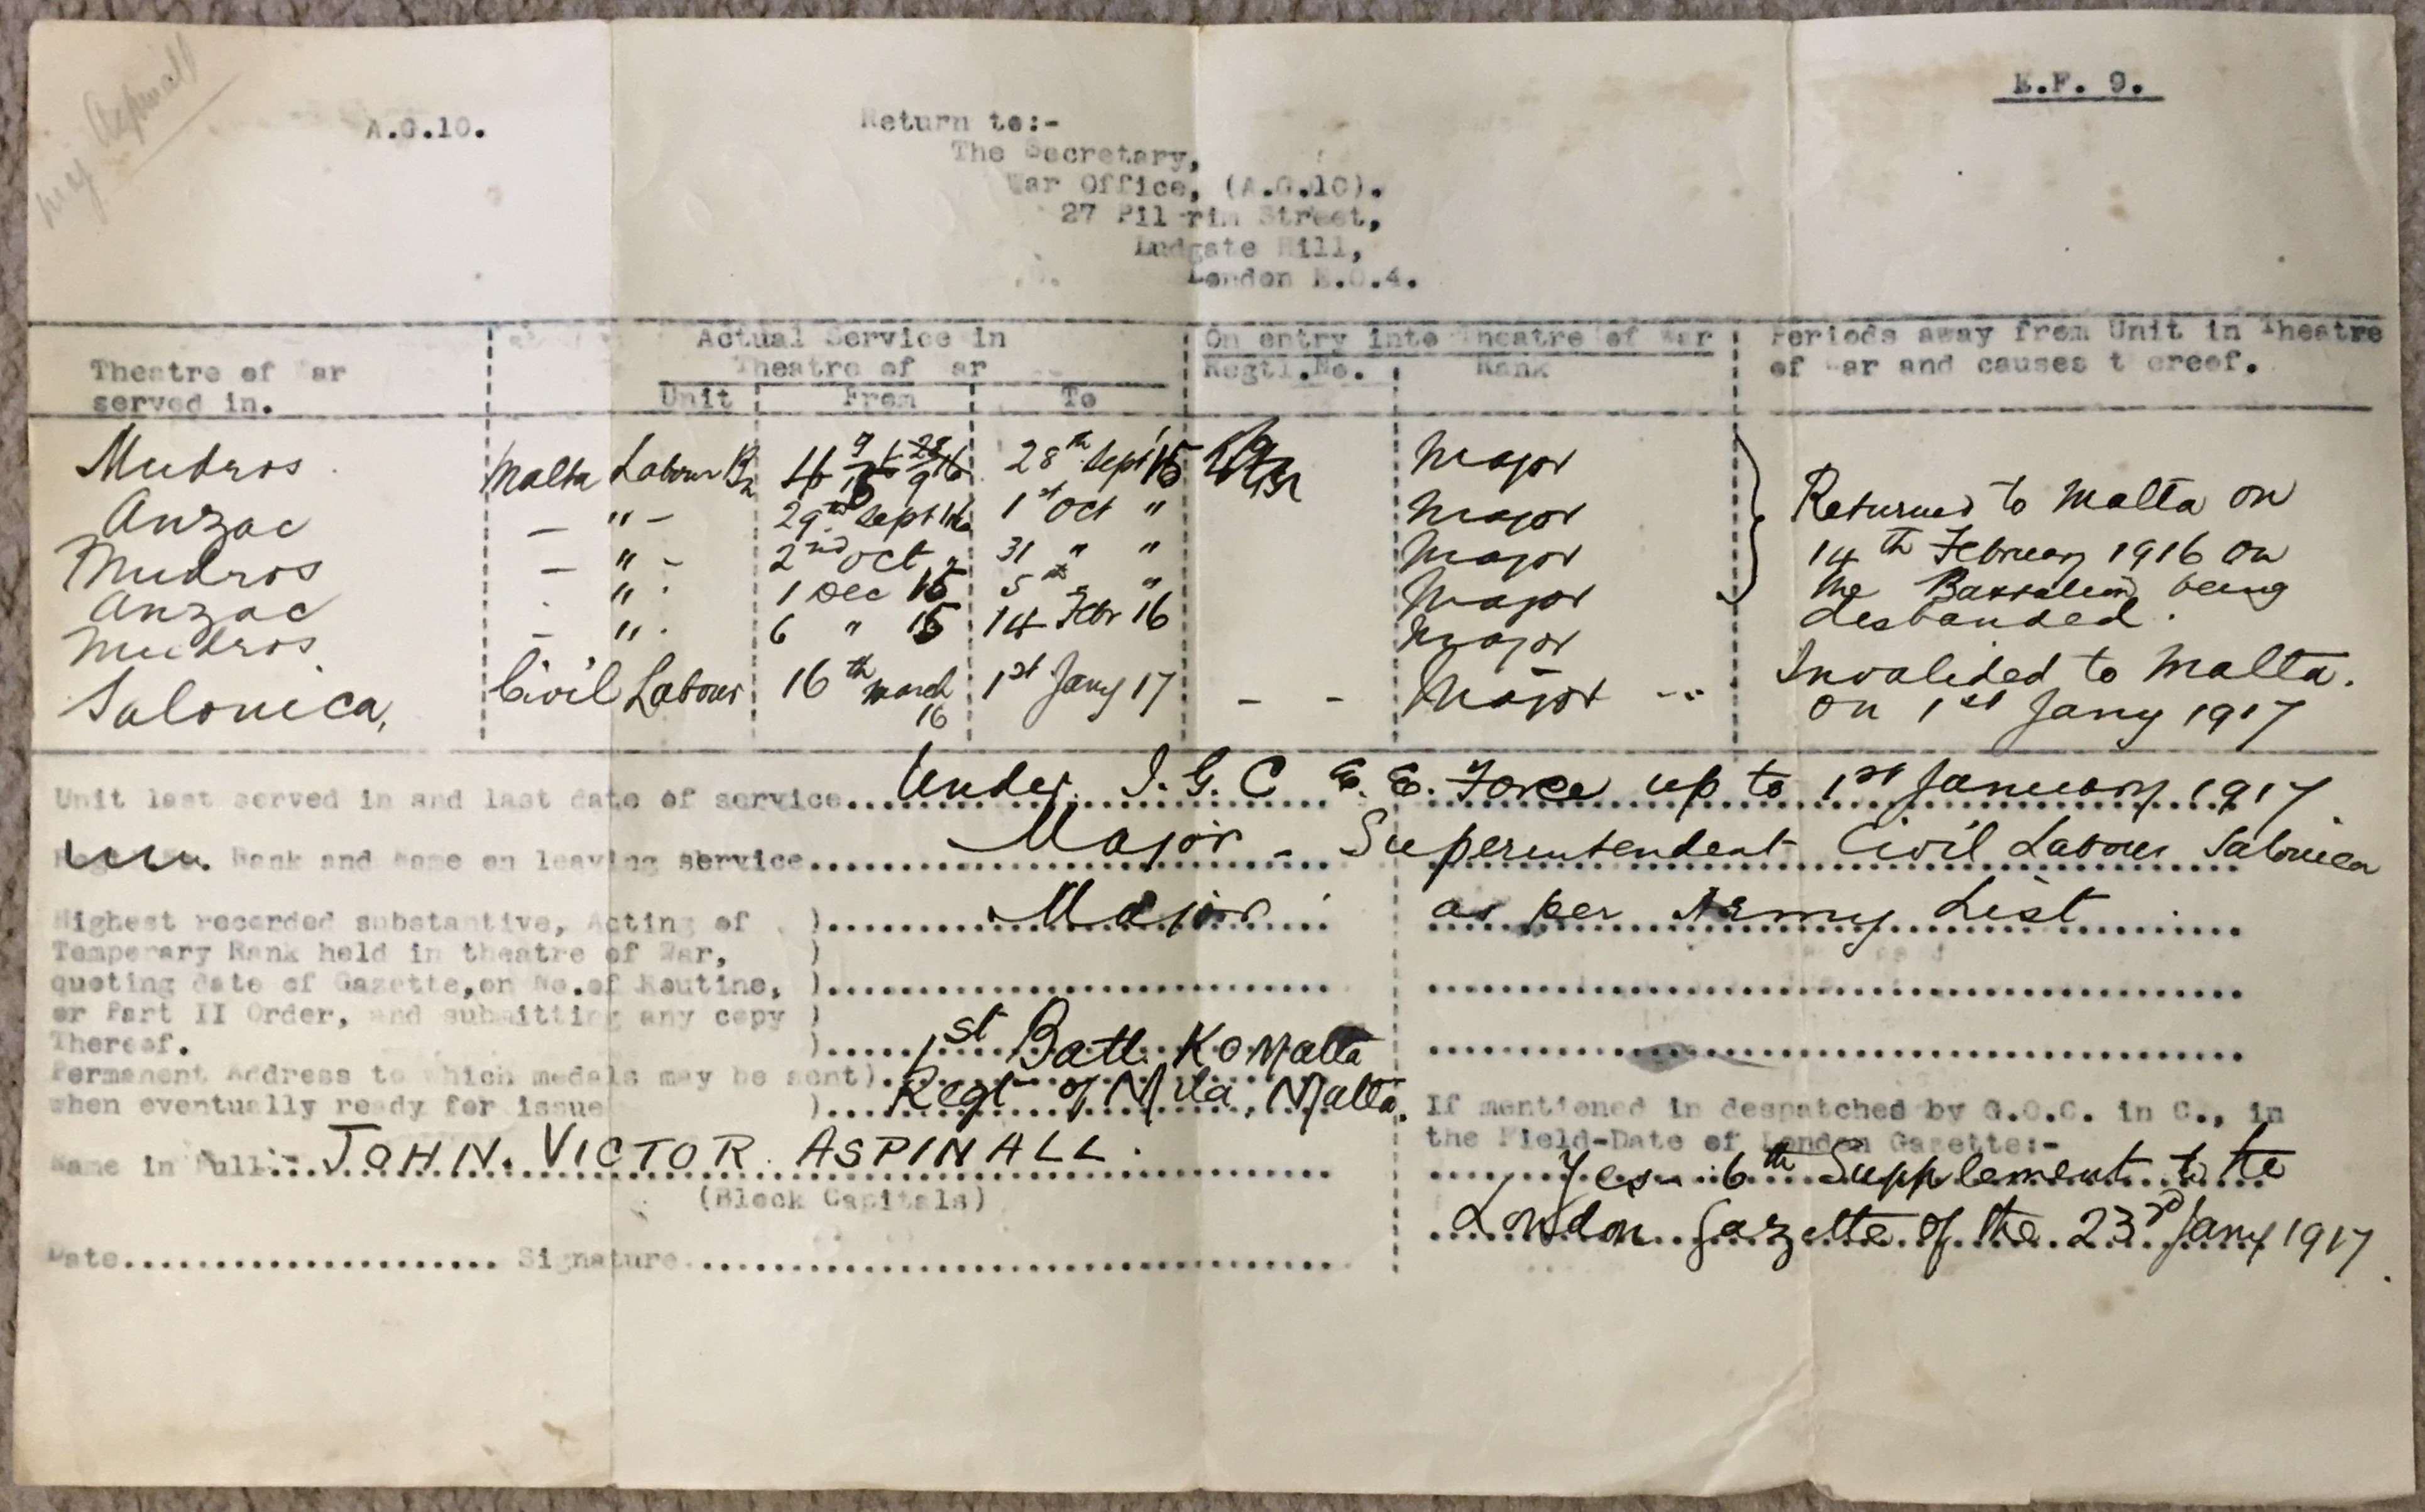 Aspinall
A.G.10.
E.F. 9.
Return to:-
The Secretary,
War Office, (A.G.10).
27 Pilgrim Street,
Ludgate Hill,
London E.C.4.
Theatre of War
served in.
Actual Service in
Theatre of War
Unit From To
On entry into Theatre of War
Regtl.No. Rank
Periods away from Unit in Theatre
of War and causes thereof.
Mudros Malta Labour Bn 28th Sept 15 Major
Anzac - " - 29th Sept 1st Oct " Major
Mudros - " - 2nd Oct " 31 " " Major
Anzac " 1 Dec 15 5th " Major
Mudros - " 6 " 15 14 Febr 16 Major
Returned to Malta on
14th February 1916 on
the Battalion being
desbanded.
Salonica, Civil Labour 16th March 16 1st Jany 17 - - Major
Invalided to Malta.
on 1st Jany 1917
Unit last served in and last date of service... Under I.G.C E.E. Force up to 1st January 1917
Rank and Name on leaving service... Major - Superintendent Civil Labour Salonica
Highest recorded substantive, Acting of )... Major as per Army List
Temperary Rank held in theatre of War, )
quoting date of Gazette,on No.of Routine, )
or Part II Order, and submitting any copy )
Thereof. )... 1st Batt. K O Malta
Permanent Address to which medals may be sent)... Regt of Mila, Malta.
when eventually ready for issue )
Name in Full:- JOHN. VICTOR ASPINALL.
(Block Capitals)
Date... Signature...
If mentioned in despatched by G.O.C. in C., in
the Field-Date of London Gazette:-
Yes - 6th Supplement to the
London Gazette of the 23rd Jany 1917.